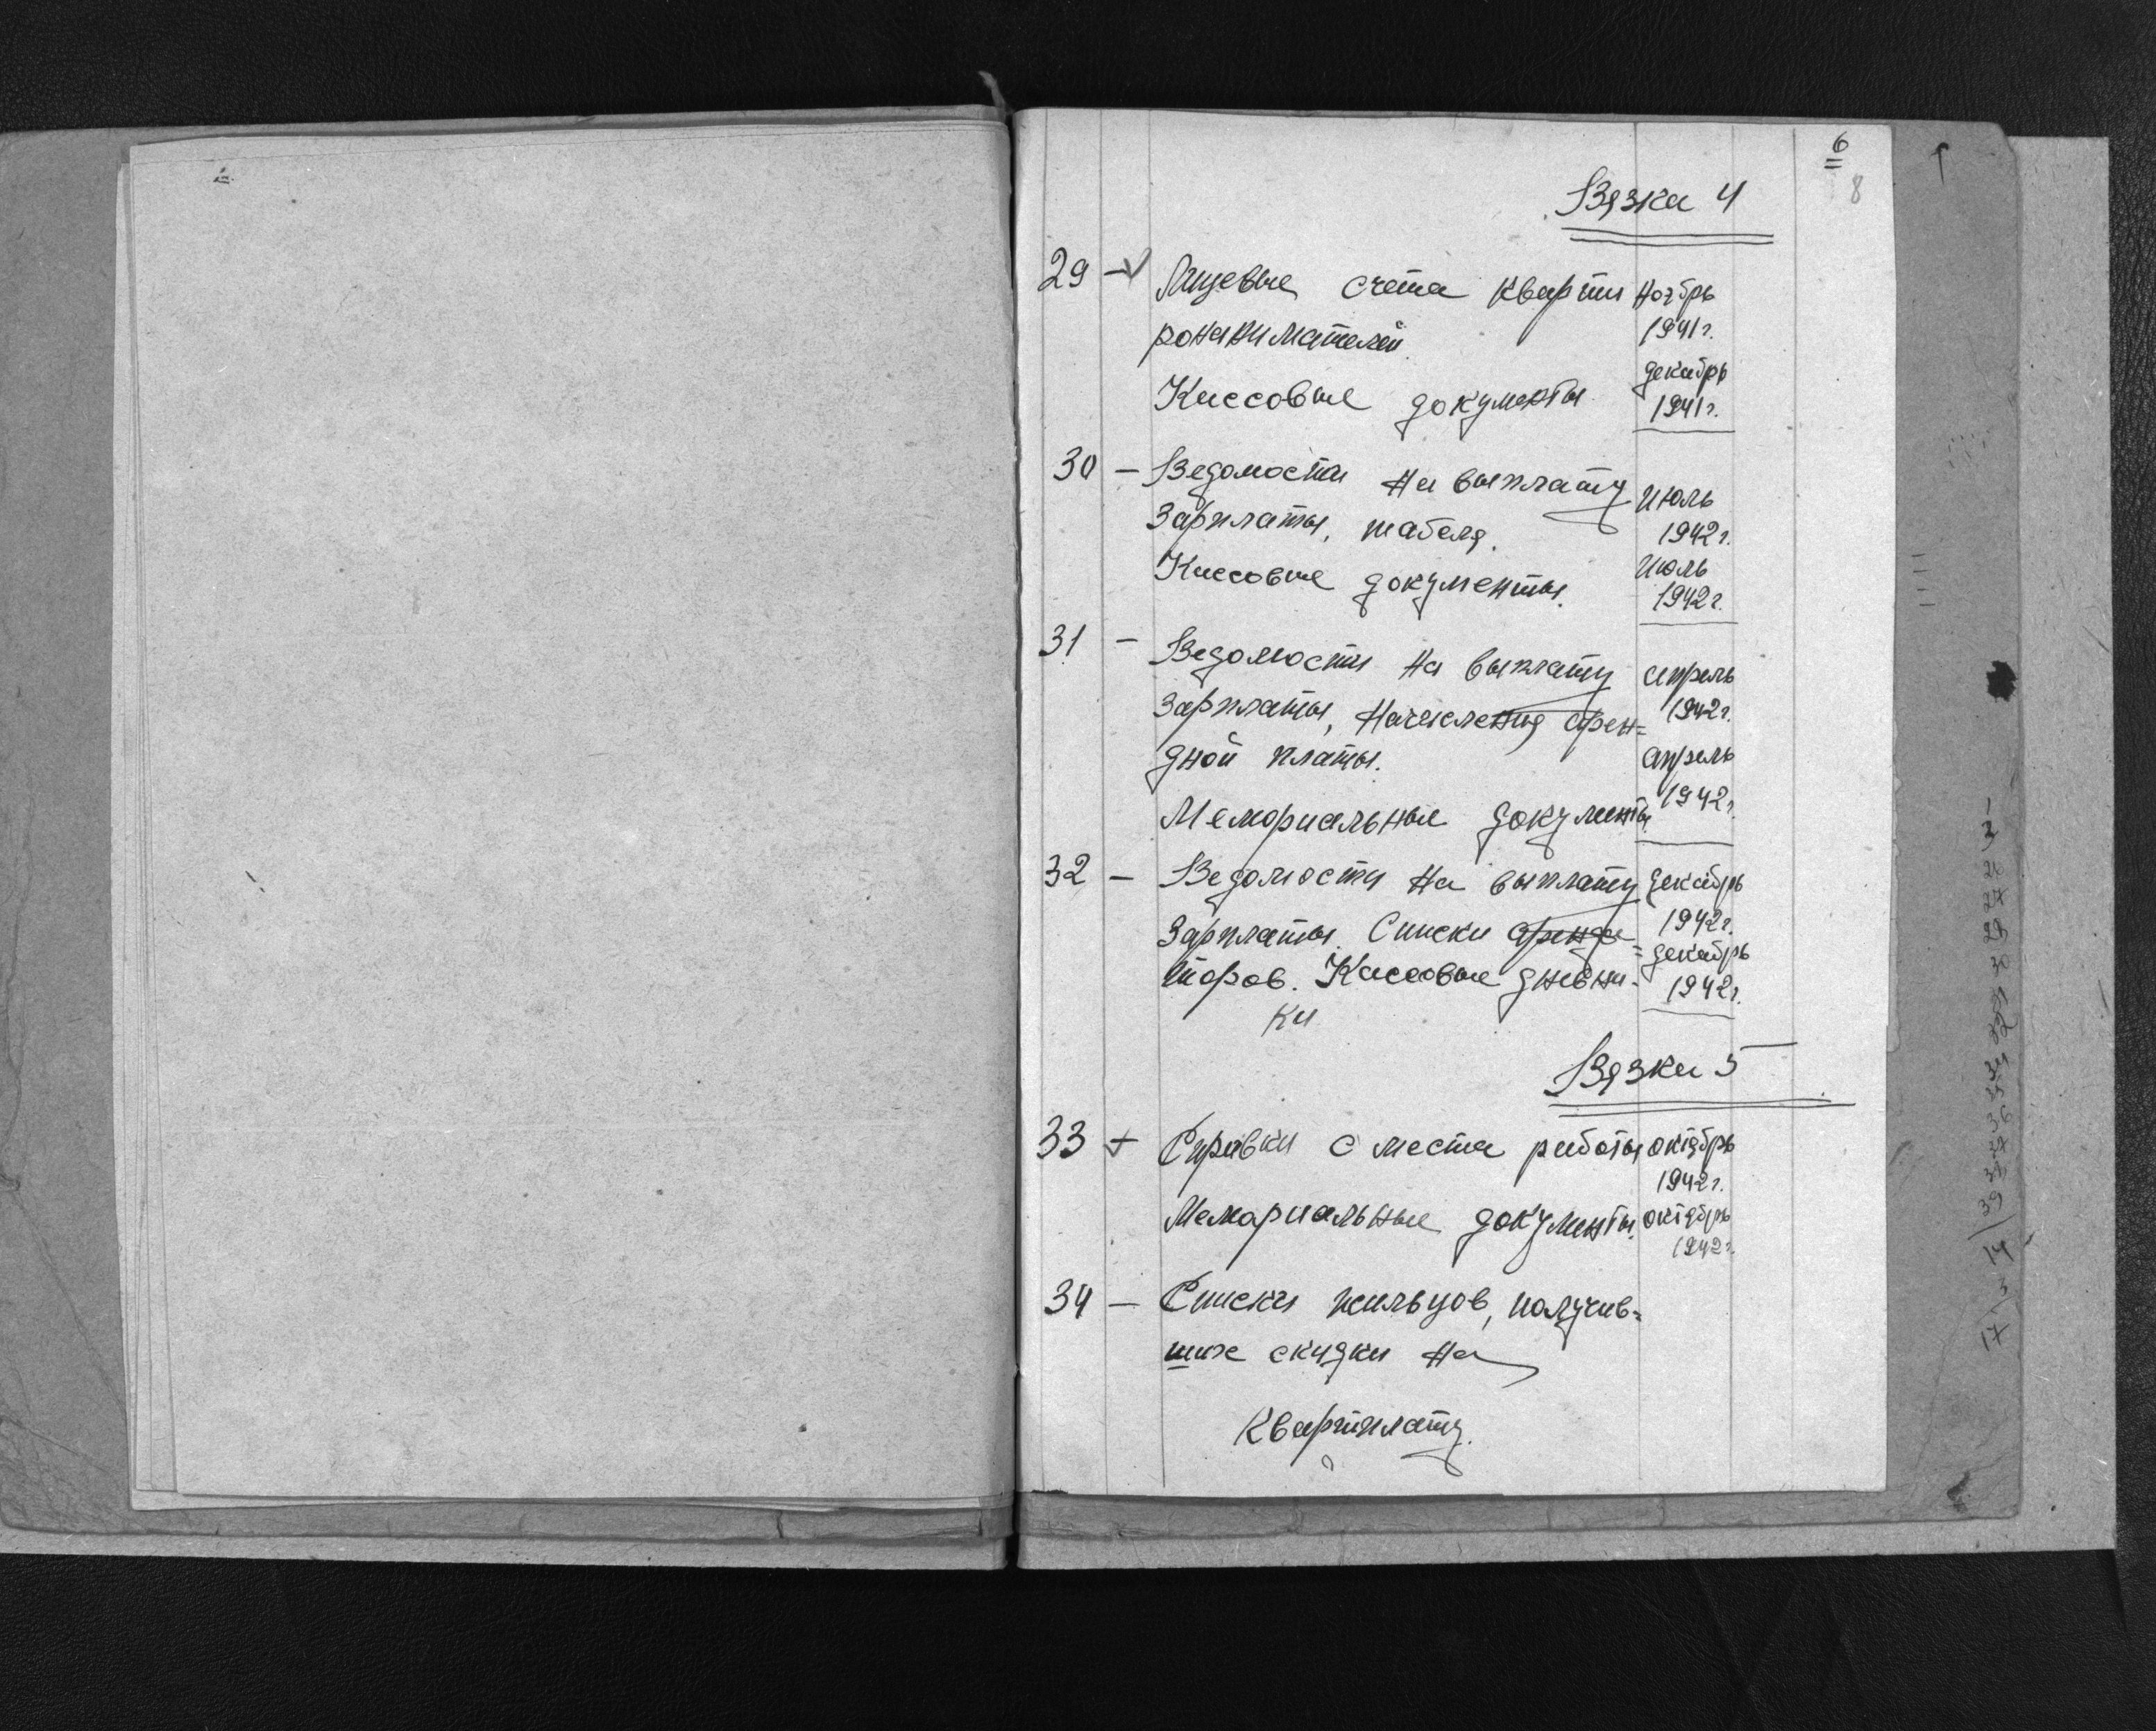 6
8
Вязка 4
29 – Лицевые счета кварти ноябрь
ронанимателей. 1941 г.
Кассовые документы декабрь
1941 г.
30 – Ведомости на выплату июль
зарплаты, табеля. 1942 г.
Кассовые документы. июль
1942 г.
31 – Ведомости на выплату апрель
зарплаты, начисления арен= 1942 г.
дной платы. апрель
Мемориальные документы. 1942 г.
32 – Ведомости на выплату декабрь
зарплаты. Списки аренда= 1942 г.
торов. Кассовые дневни- декабрь
ки 1942 г.
Вязка 5
33 + Справки с места работы октябрь
1942 г.
Мемориальные документы. октябрь
1942 г.
34 – Списки жильцов, получив=
ших скидки на
квартплату.
27
30
36
39
14
3
17